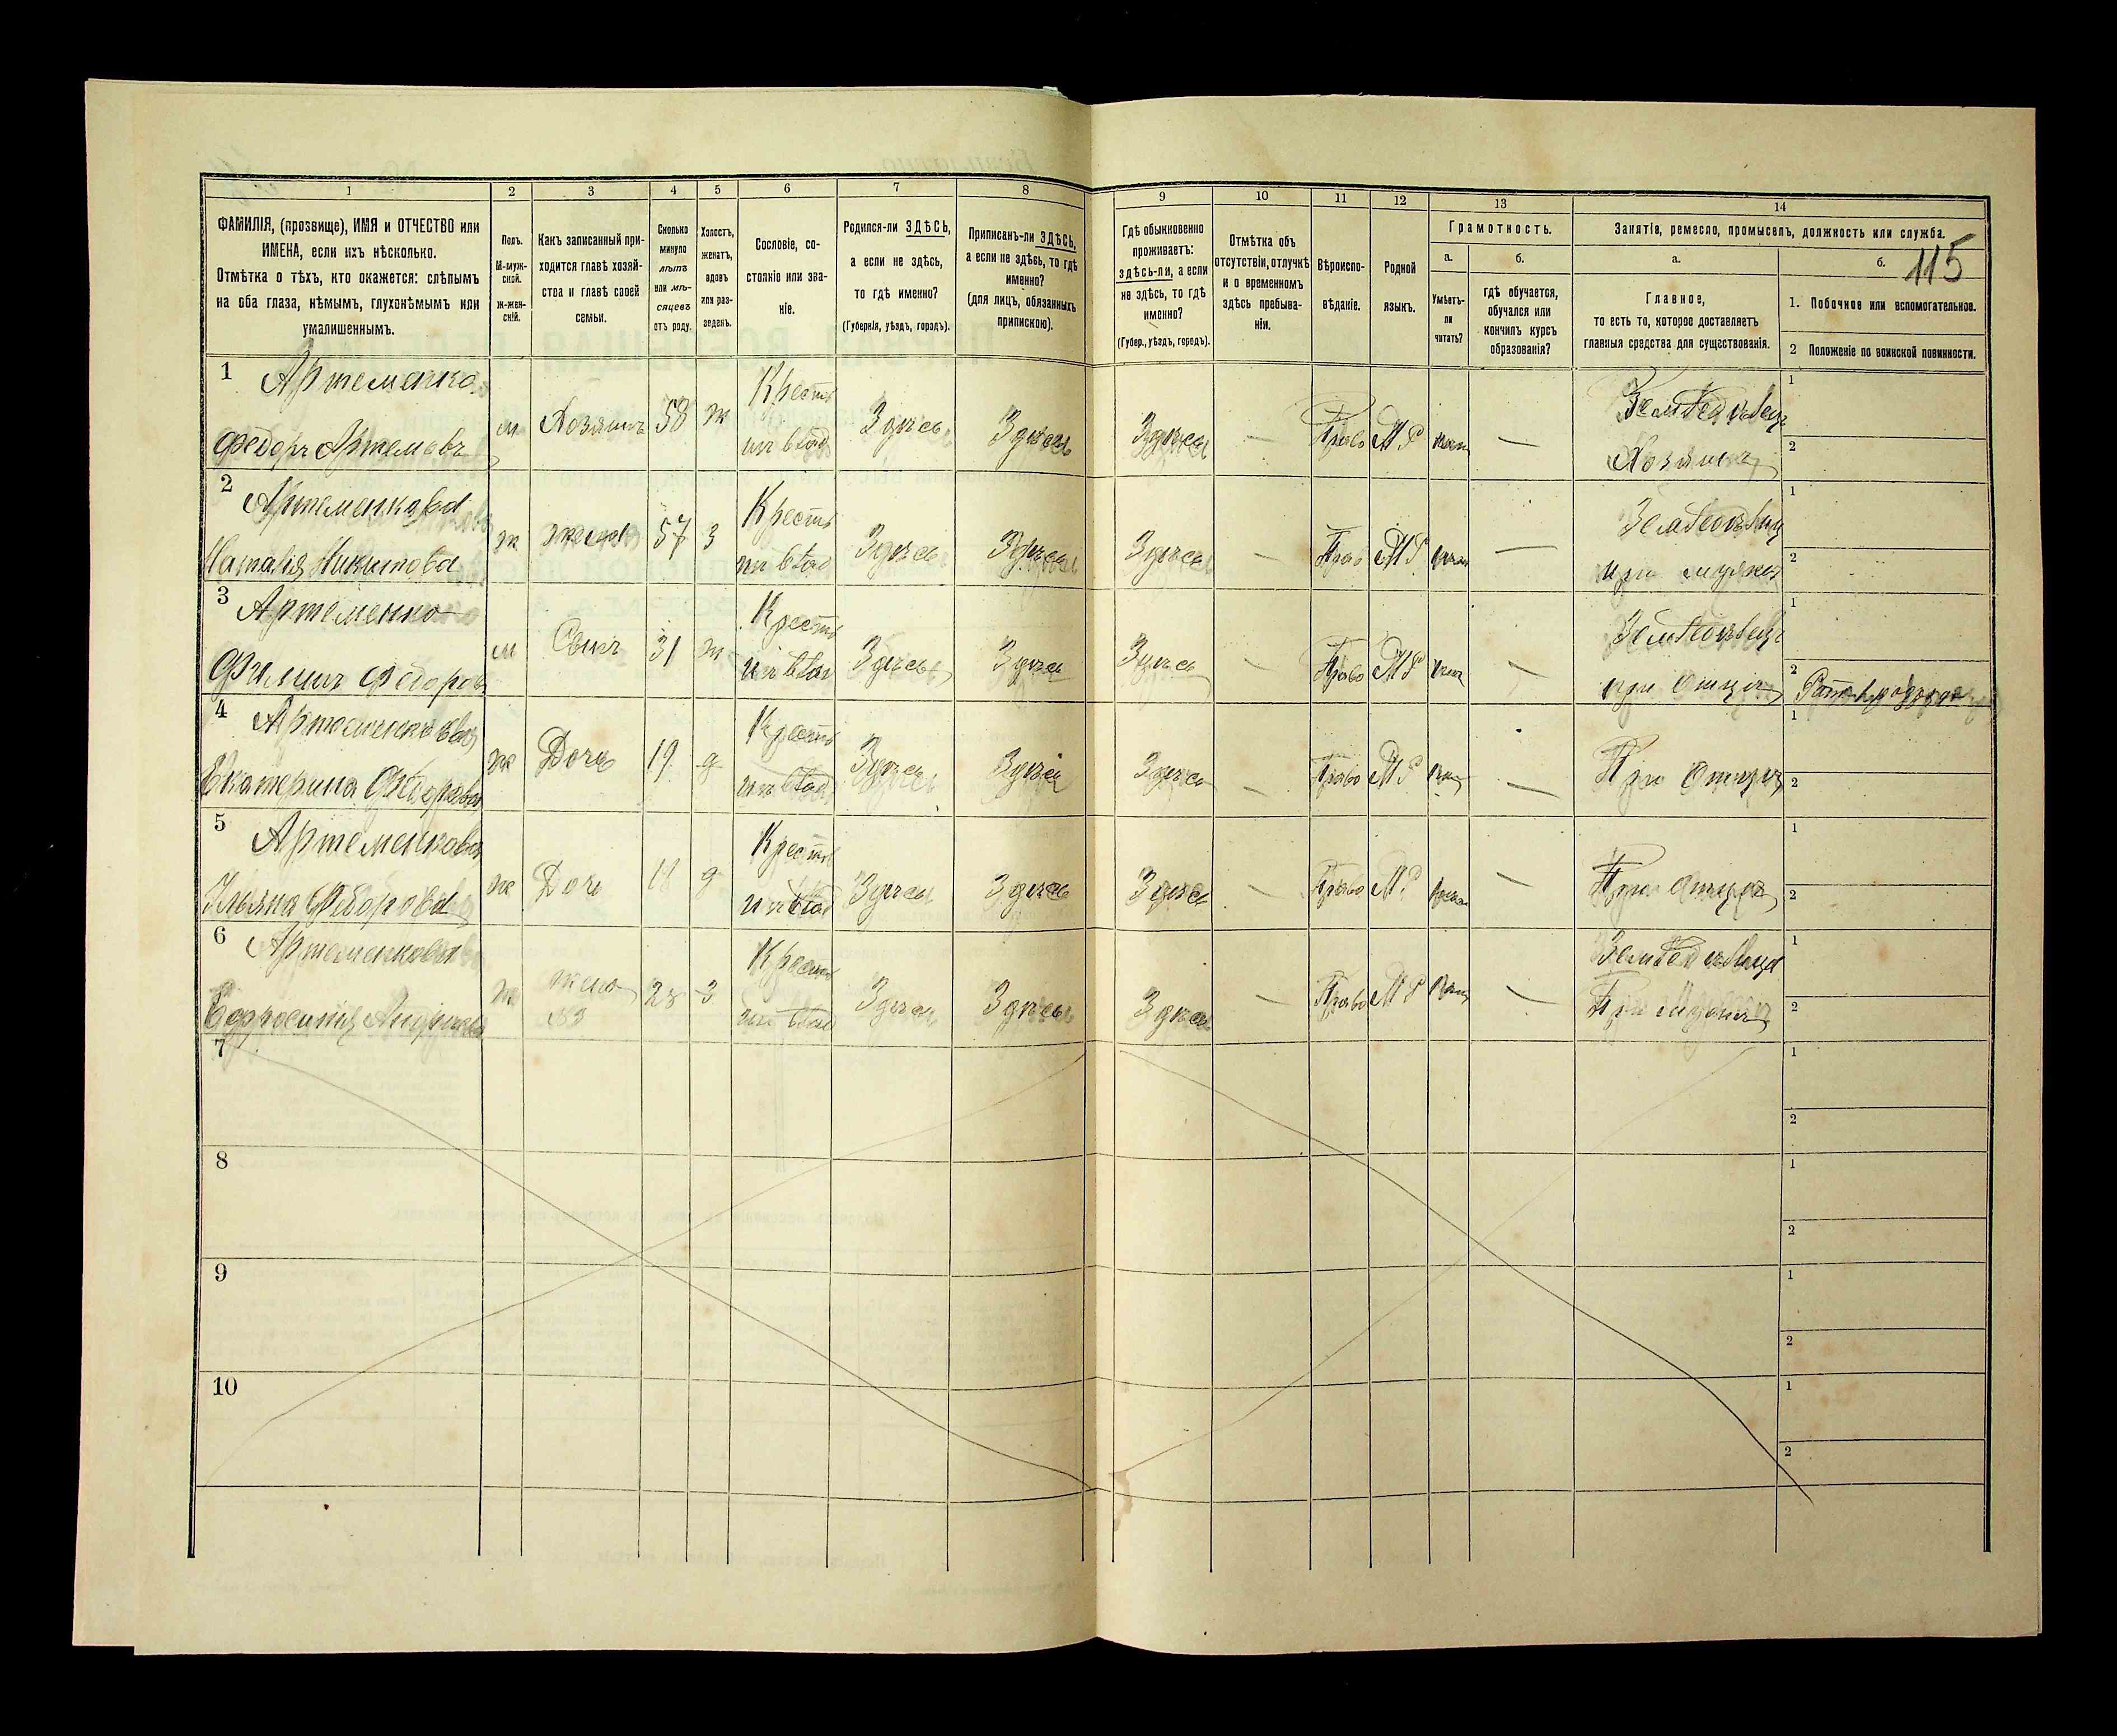 1 2 3 4 5 6 7 8 9 10 11 12 13 14
ФАМИЛІЯ, (прозвище), ИМЯ и ОТЧЕСТВО или
ИМЕНА, если ихъ нѣсколько.
Отмѣтка о тѣхъ, кто окажется: слѣпымъ
на оба глаза, нѣмымъ, глухонѣмымъ или
умалишеннымъ.
Полъ.
М-муж-
ской.
Ж-жен-
скій.
Какъ записанный при-
ходится главѣ хозяй-
ства и главѣ своей
семьи.
Сколько
минуло
лѣтъ
или мѣ-
сяцевъ
отъ роду.
Холостъ,
женатъ,
вдовъ
или раз-
веденъ.
Сословіе, со-
стояніе или зва-
ніе.
Родился-ли ЗДѢСЬ,
а если не здѣсь,
то гдѣ именно?
(Губернія, уѣздъ, городъ).
Приписанъ-ли ЗДѢСЬ,
а если не здѣсь, то гдѣ
именно?
(для лицъ, обязанныхъ
припискою).
Гдѣ обыкновенно
проживаетъ:
здѣсь-ли, а если
не здѣсь, то гдѣ
именно?
(Губер., уѣздъ, городъ).
Отмѣтка объ
отсутствіи, отлучкѣ
и о временномъ
здѣсь пребыва-
ніи.
Вѣроиспо-
вѣданіе.
Родной
языкъ.
Грамотность.
а.
Умѣетъ-
ли
читать?
б.
гдѣ обучается,
обучался или
кончилъ курсъ
образованія?
Занятія, ремесло, промыселъ, должность или служба.
а.
Главное,
то есть то, которое доставляетъ
главныя средства для существованія.
б.
115
1. Побочное или вспомогательное.
2 Положеніе по воинской повинности.
1 Артеменко
Федоръ Артемовъ м Хозяинъ 58 ж Крест Здѣсь Здѣсь Здѣсь — Право М Р — Земледѣлецъ
Хозяинъ
1
2
2 Артеменкова
Наталія Никитова ж жена 57 з Крест Здѣсь Здѣсь Здѣсь — Прав М Р —
при мужѣ
1
2
3 Артеменко
Филипъ Федоров м Сынъ 31 ж Крест Здѣсь Здѣсь Здѣсь — Право М Р — Земледѣлецъ
при Отцѣ
1
2
4 Артеменкова
Екатерина Федорова ж Дочь 19 д Крест Здѣсь Здѣсь Здѣсь — Право М Р — При Отцѣ
1
2
5 Артеменкова
Ульяна Федорова ж Дочь д Крест Здѣсь Здѣсь Здѣсь — Право М Р — При Отцѣ
1
2
6 Артеменкова
Ефросинія ж жена з Крест Здѣсь Здѣсь Здѣсь — Право М Р —
№3 При Мужѣ
1
2
7
1
2
8
1
2
9
1
2
10
1
2